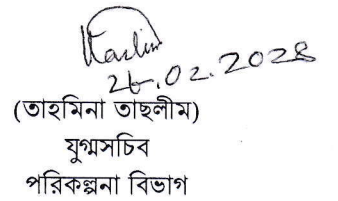 26.02.2028
(তাহমিনা তাছলীম)
যুগ্মসচিব
পরিকল্পনা বিভাগ